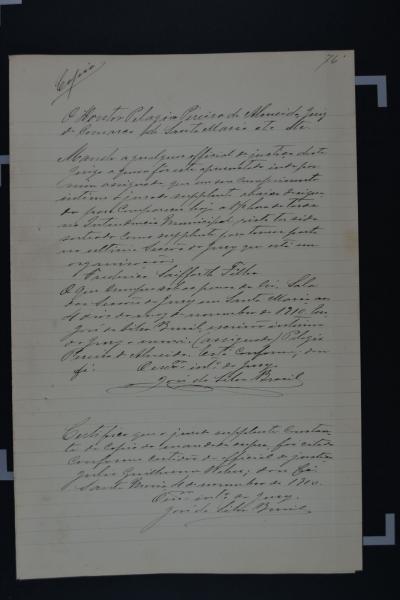 76
Copia
O Doutor Pelagio Pereira de Almeida, Juiz
da Comarca de Santa Maria etc. etc.
Mando a qualquer official de justiça deste
Juizo a quem for este apresentado indo por
mim assignado, que em seu cumprimento
intime o jurado supplente abaixo designa
do para comparecer hoje a horas da tarde
na Intendencia Municipal, visto ter sido
sorteado como supplente para tomar parte
na ultima Sessão do Jury que está em
organisação:
Frederico Seifferth Filho
O que cumpra sob as penas da lei. Sala
das Sessões do Jury em Santa Maria, aos
4 dias do mez de novembro de 1910. Eu,
José da Silva Brasil, escrivão interino
do Jury o escrevi. (assignado) Pelagio
Pereira de Almeida. Está conforme, dou
fé. O escrm. intº. do Jury.
José da Silva Brasil
Certifico que o jurado supplente constan
te da copia do mandado supra foi citado
conforme certidão do official de justiça
Julio Guilherme Weber; dou fé.
Santa Maria 4 de novembro de 1910.
O escrm. intº. do Jury.
José da Silva Brasil.